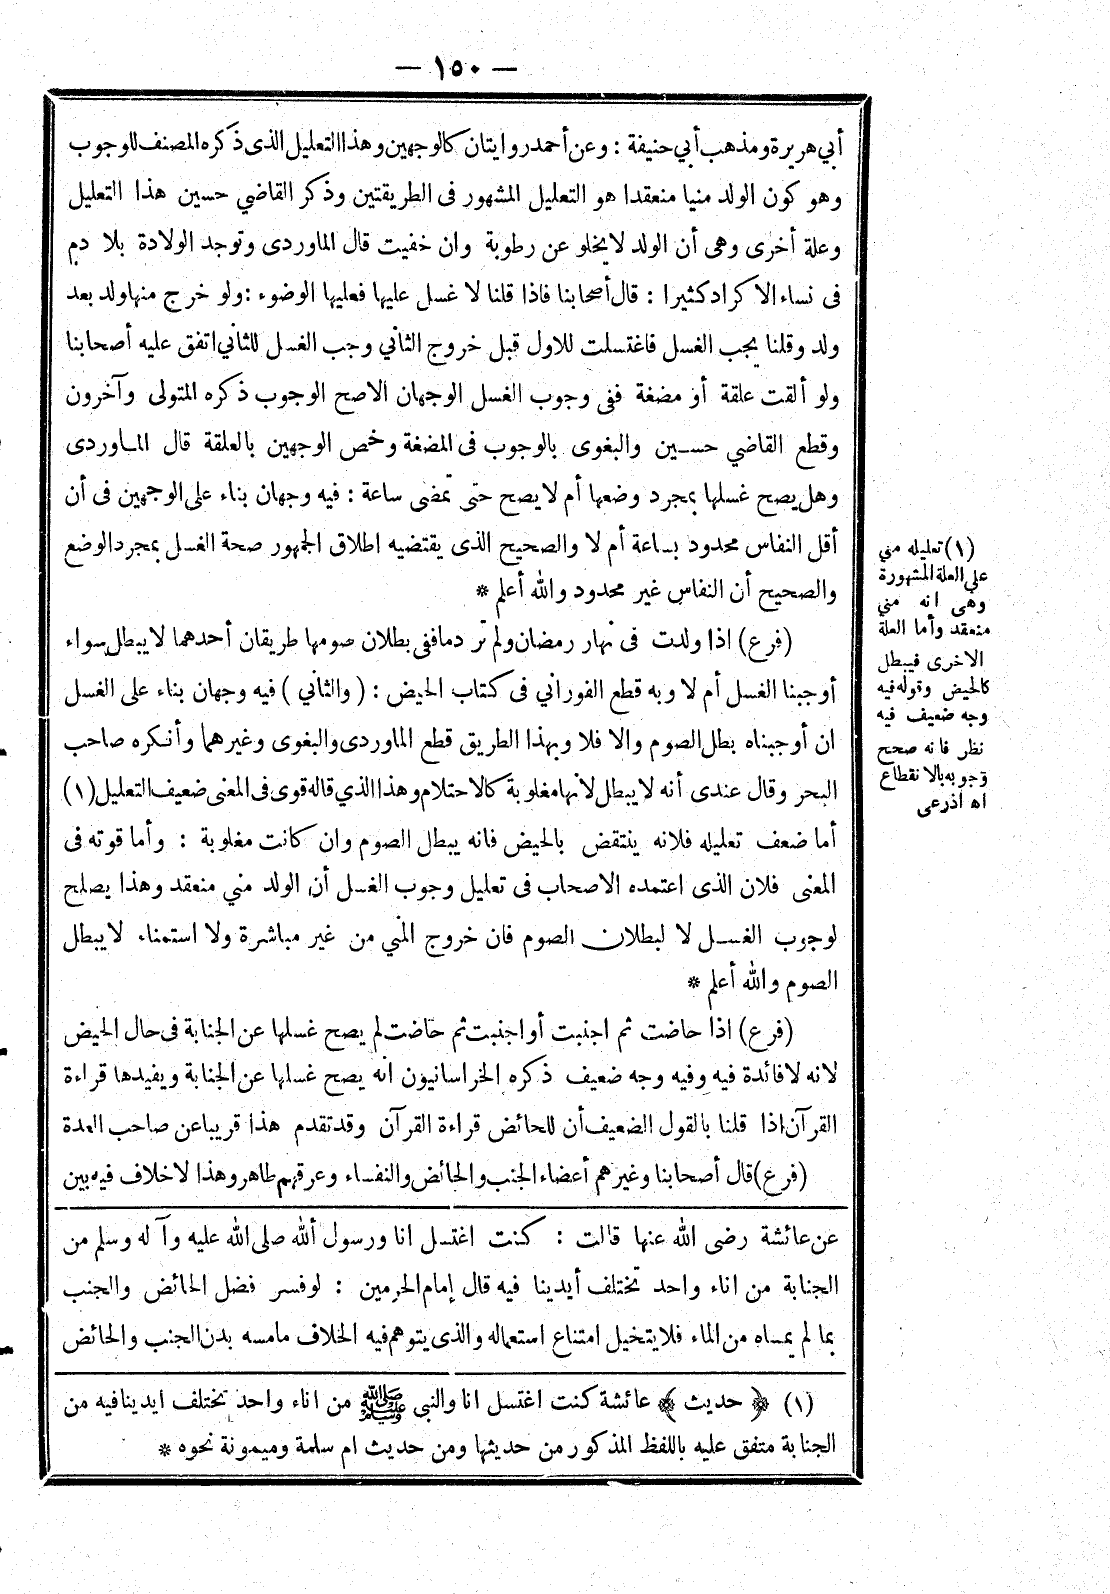 — ١٥٠ —
أبي هريرة ومذهب أبي حنيفة : وعن أحمد روايتان كالوجهين وهذا التعليل الذى ذكره المصنف للوجوب
وهو كون الولد منيا منعقدا هو التعليل المشهور فى الطريقتين وذكر القاضي حسين هذا التعليل
وعلة أخرى وهى أن الولد لا يخلو عن رطوبة وان خفيت قال الماوردى وتوجد الولادة بلا دم
فى نساء الاكراد كثيرا : قال أصحابنا فاذا قلنا لا غسل عليها فعليها الوضوء : ولو خرج منها ولد بعد
ولد وقلنا يجب الغسل فاغتسلت للاول قبل خروج الثاني وجب الغسل للثاني اتفق عليه أصحابنا
ولو ألقت علقة أو مضغة ففى وجوب الغسل الوجهان الاصح الوجوب ذكره المتولى وآخرون
وقطع القاضي حسين والبغوى بالوجوب فى المضغة وخص الوجهين بالعلقة قال الماوردى
وهل يصح غسلها بمجرد وضعها أم لا يصح حتى تمضى ساعة : فيه وجهان بناء على الوجهين فى أن
أقل النفاس محدود بساعة أم لا والصحيح الذى يقتضيه اطلاق الجمهور صحة الغسل بمجرد الوضع
والصحيح أن النفاس غير محدود والله أعلم *
(فرع) اذا ولدت فى نهار رمضان ولم تر دما ففى بطلان صومها طريقان أحدهما لا يبطل سواء
أوجبنا الغسل أم لا وبه قطع الفوراني فى كتاب الحيض : ( والثاني ) فيه وجهان بناء على الغسل
ان أوجبناه بطل الصوم والا فلا وبهذا الطريق قطع الماوردى والبغوى وغيرهما وأنكره صاحب
البحر وقال عندى أنه لا يبطل لانها مغلوبة كالاحتلام وهذا الذي قاله قوى فى المعنى ضعيف التعليل (١)
أما ضعف تعليله فلانه ينتقض بالحيض فانه يبطل الصوم وان كانت مغلوبة : وأما قوته فى
المعنى فلان الذى اعتمده الاصحاب فى تعليل وجوب الغسل أن الولد مني منعقد وهذا يصلح
لوجوب الغسل لا لبطلان الصوم فان خروج المني من غير مباشرة ولا استمناء لا يبطل
الصوم والله أعلم *
(فرع) اذا حاضت ثم اجنبت أو اجنبت ثم حاضت لم يصح غسلها عن الجنابة فى حال الحيض
لانه لا فائدة فيه وفيه وجه ضعيف ذكره الخراسانيون انه يصح غسلها عن الجنابة ويفيدها قراءة
القرآن اذا قلنا بالقول الضعيف أن للحائض قراءة القرآن وقد تقدم هذا قريبا عن صاحب العدة
(فرع) قال أصحابنا وغيرهم أعضاء الجنب والحائض والنفساء وعرقهم طاهر وهذا لا خلاف فيه بين
(١) تعليله مني
على العلة المشهورة
وهى انه مني
منعقد وأما العلة
الاخرى فيبطل
كالحيض وقوله فيه
وجه ضعيف فيه
نظر فانه صحح
وجوبه بالانقطاع
اه اذرعى
عن عائشة رضى الله عنها قالت : كنت اغتسل انا ورسول ألله صلى الله عليه وآله وسلم من
الجنابة من اناء واحد تختلف أيدينا فيه قال إمام الحرمين : لو فسر فضل الحائض والجنب
بما لم يمساه من الماء فلا يتخيل امتناع استعماله والذى يتوهم فيه الخلاف مامسه بدن الجنب والحائض
(١) ﴿ حديث ﴾ عائشة كنت اغتسل انا والنبى ﷺ من اناء واحد تختلف ايدينا فيه من
الجنابة متفق عليه باللفظ المذكور من حديثها ومن حديث ام سلمة وميمونة نحوه *